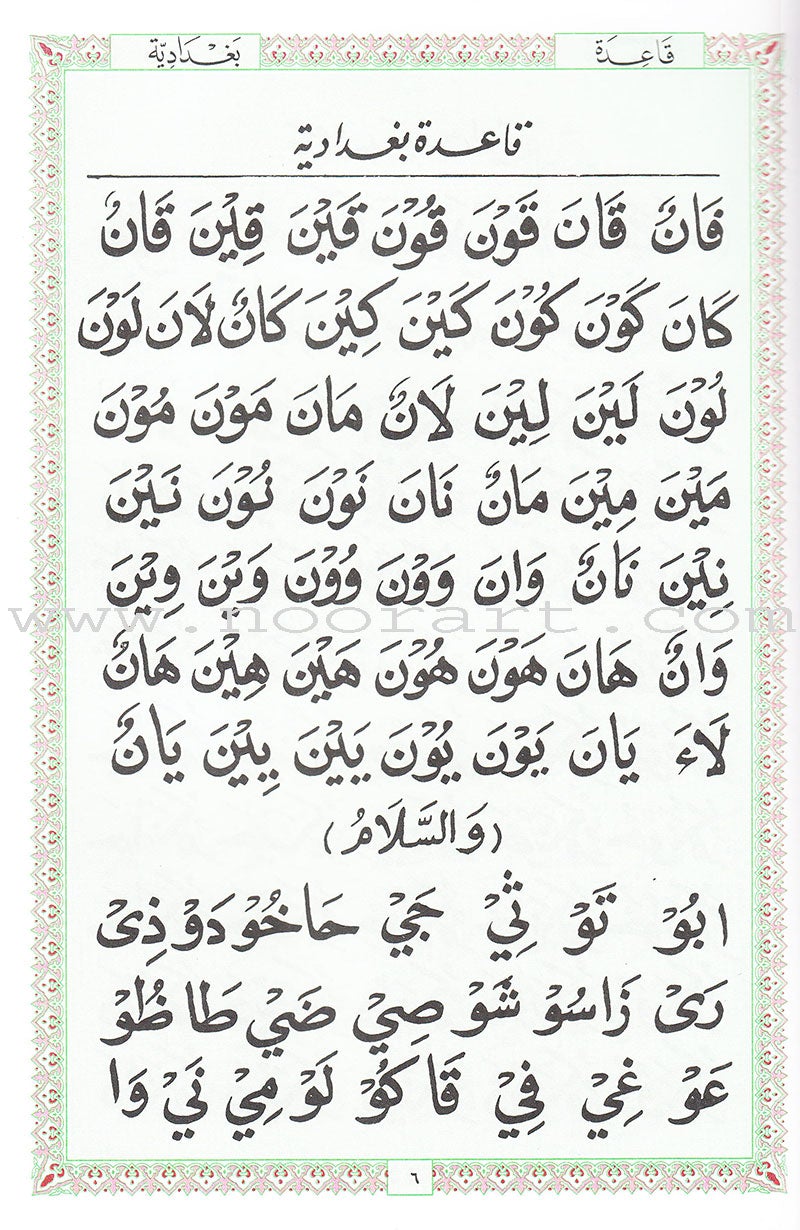 قَاعِدَة بَغْدَادِيَّة
قاعدة بغدادية
فَانٌ قَانَ قَوْنَ قُوْنَ قَيْنَ قِيْنَ قَانٌ
كَانَ كَوْنَ كُوْنَ كَيْنَ كِيْنَ كَانٌ لَانَ لَوْنَ
لُوْنَ لَيْنَ لِيْنَ لَانٌ مَانَ مَوْنَ مُوْنَ
مَيْنَ مِيْنَ مَانٌ نَانَ نَوْنَ نُوْنَ نَيْنَ
نِيْنَ نَانٌ وَانَ وَوْنَ وُوْنَ وَيْنَ وِيْنَ
www.noorart.com
وَانٌ هَانَ هَوْنَ هُوْنَ هَيْنَ هِيْنَ هَانٌ
لَاءَ يَانَ يَوْنَ يُوْنَ يَيْنَ يِيْنَ يَانٌ
(وَالسَّلَامُ)
ا بُوْ تَوْ ثِيْ جَيْ حَا خُوْ دَوْ ذِىْ
رَىْ زَا سُوْ شَوْ صِيْ ضَيْ طَا ظُوْ
عَوْ غِيْ فِيْ قَا كُوْ لَوْ مِيْ نَيْ وَا
٦